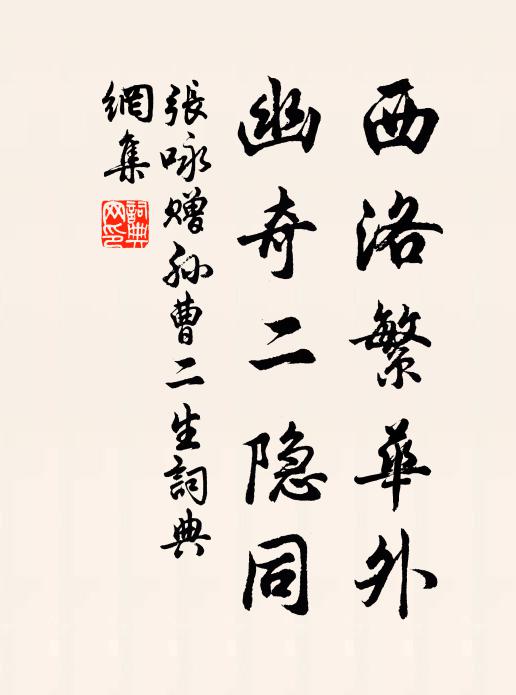 西洛繁華外
幽奇二隐同
張咏赠孙曹二生詞典
網集
詞典
网印